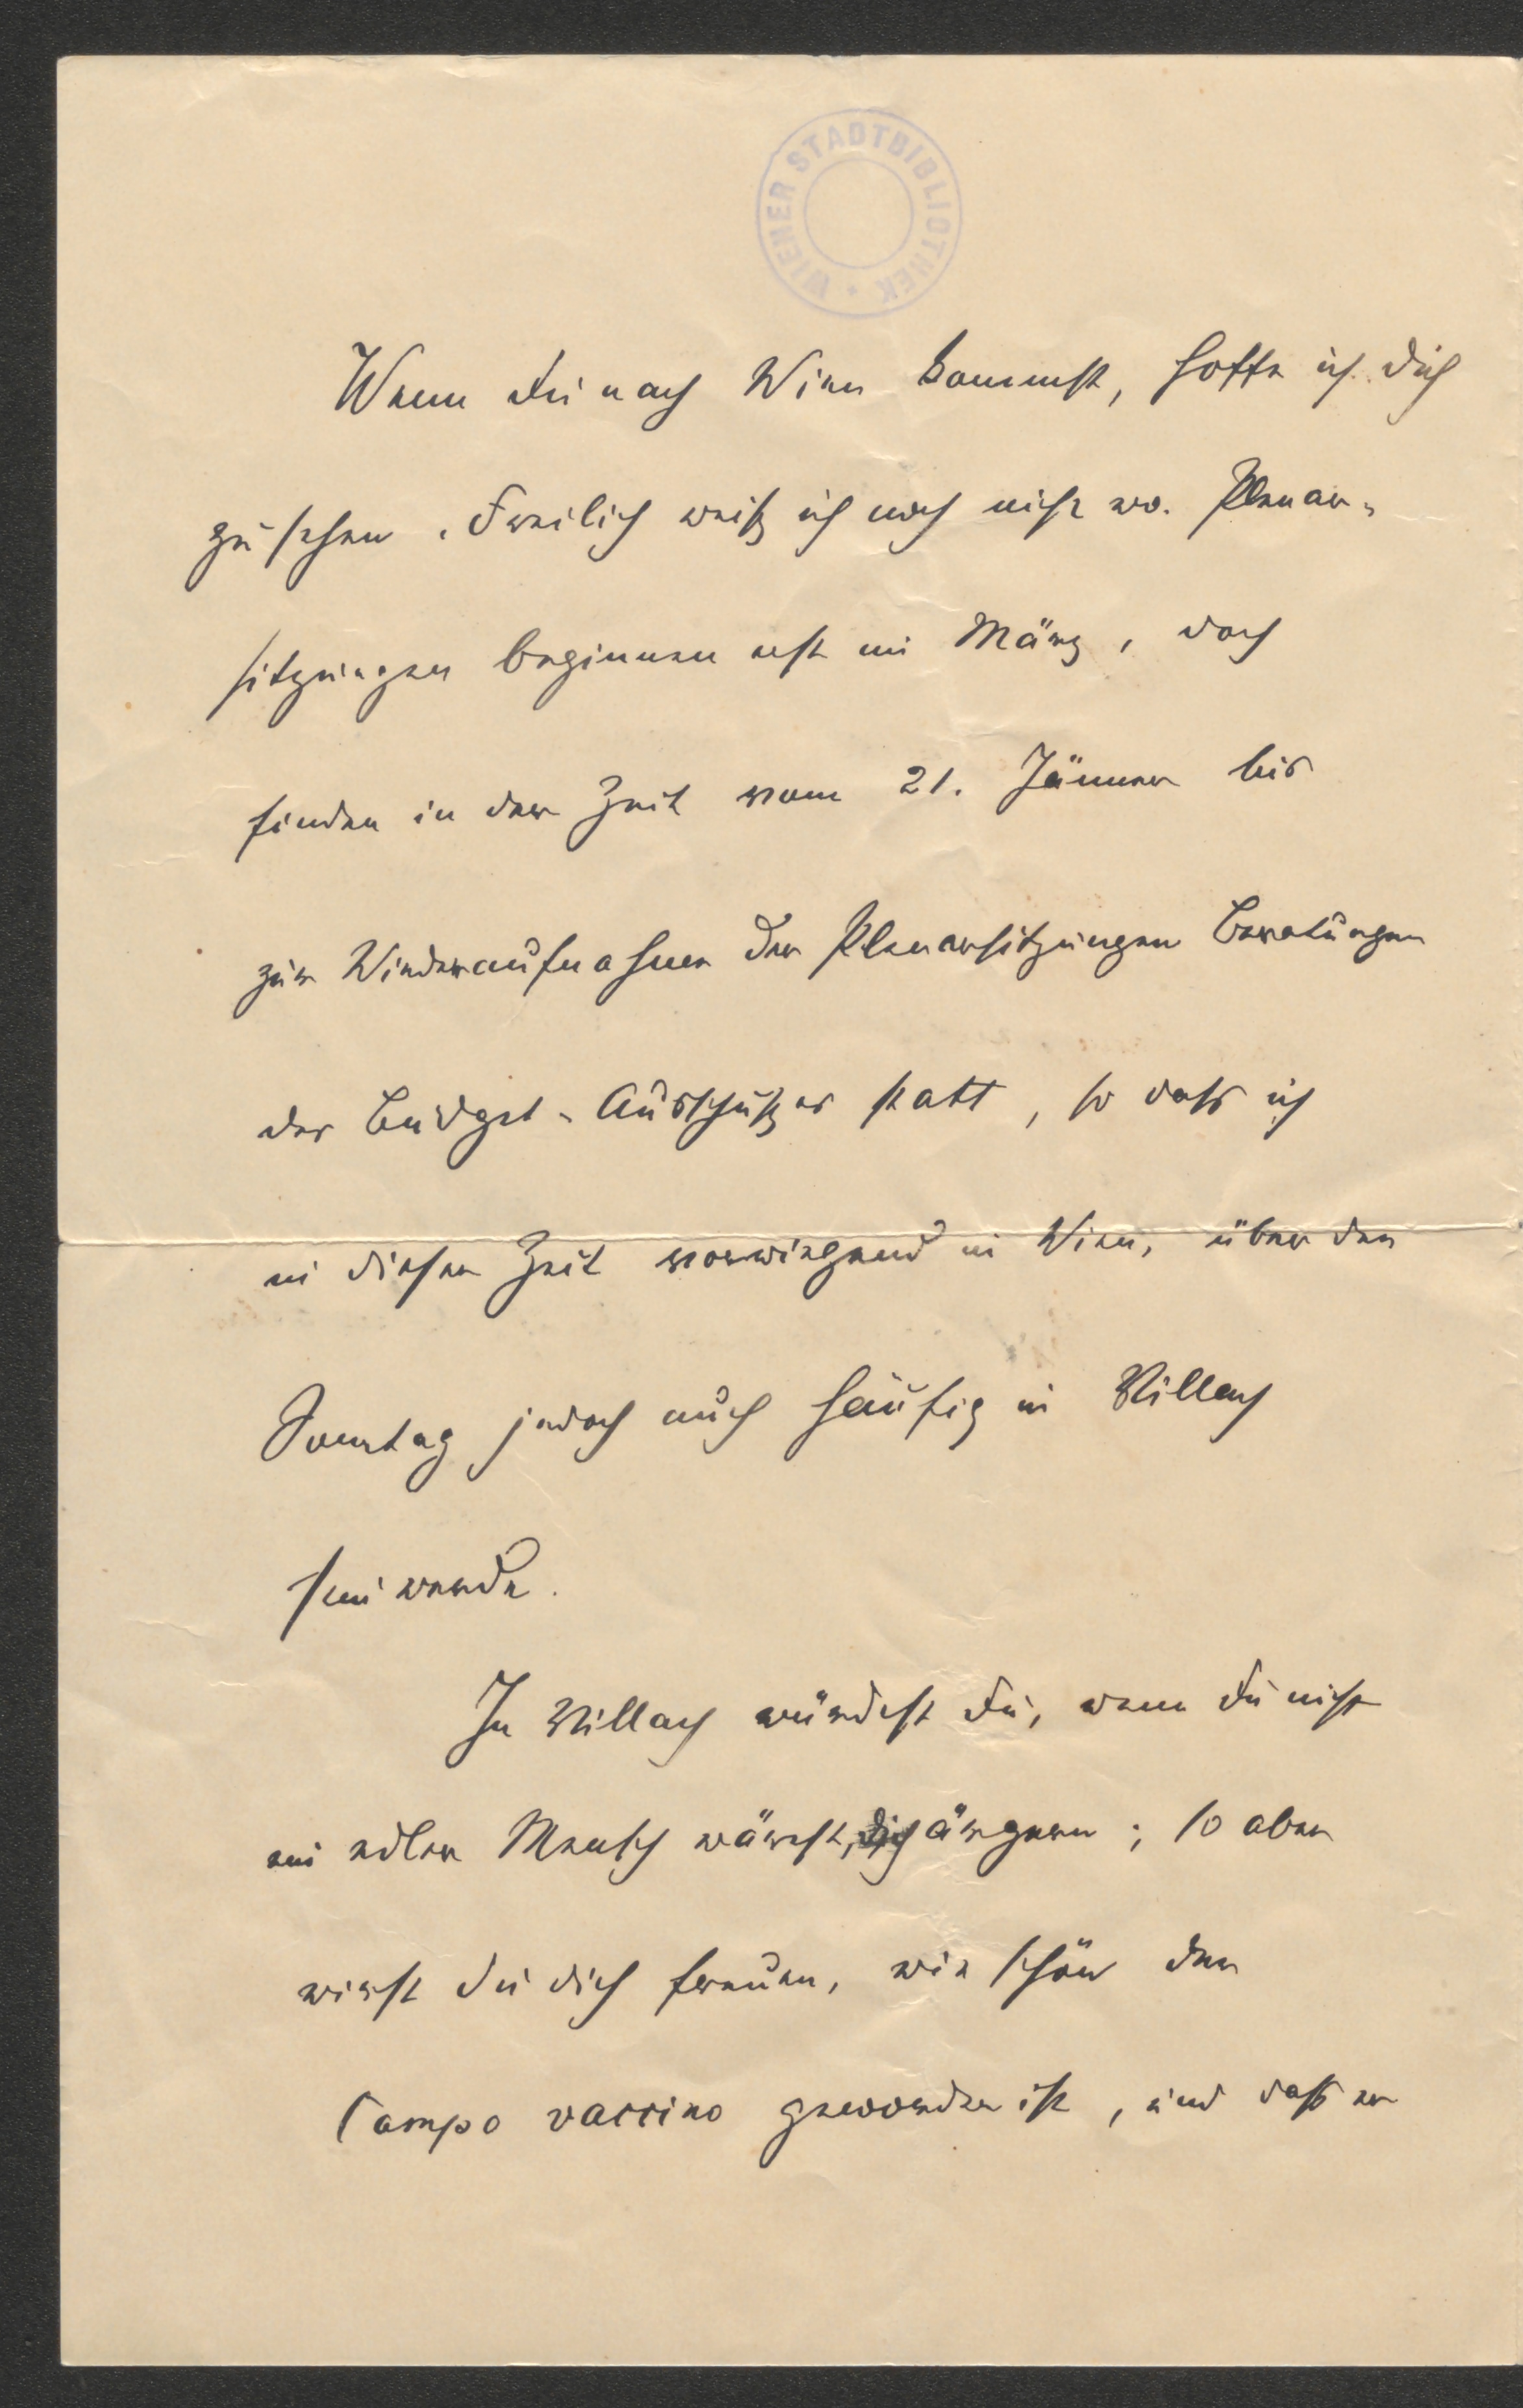 WIENER STADTBIBLIOTHEK
Wenn Du nach Wien kommst, hoffe ich Dich
zu sehen. Freilich weiß ich noch nicht wo. Plenar-
sitzungen beginnen erst im März, doch
finden in der Zeit vom 21. Jänner bis
zur Wiederaufnahme der Plenarsitzungen Beratungen
des Budget-Ausschußes statt, so daß ich
in dieser Zeit vorwiegend in Wien, über den
Sonntag jedoch auch häufig in Villach
sein werde.
In Villach würdest Du, wenn Du nicht
ein edler Mensch wärest, Dich ärgern; so aber
wirst Du Dich freuen, wie schön der
Campo vaccino geworden ist, und daß er